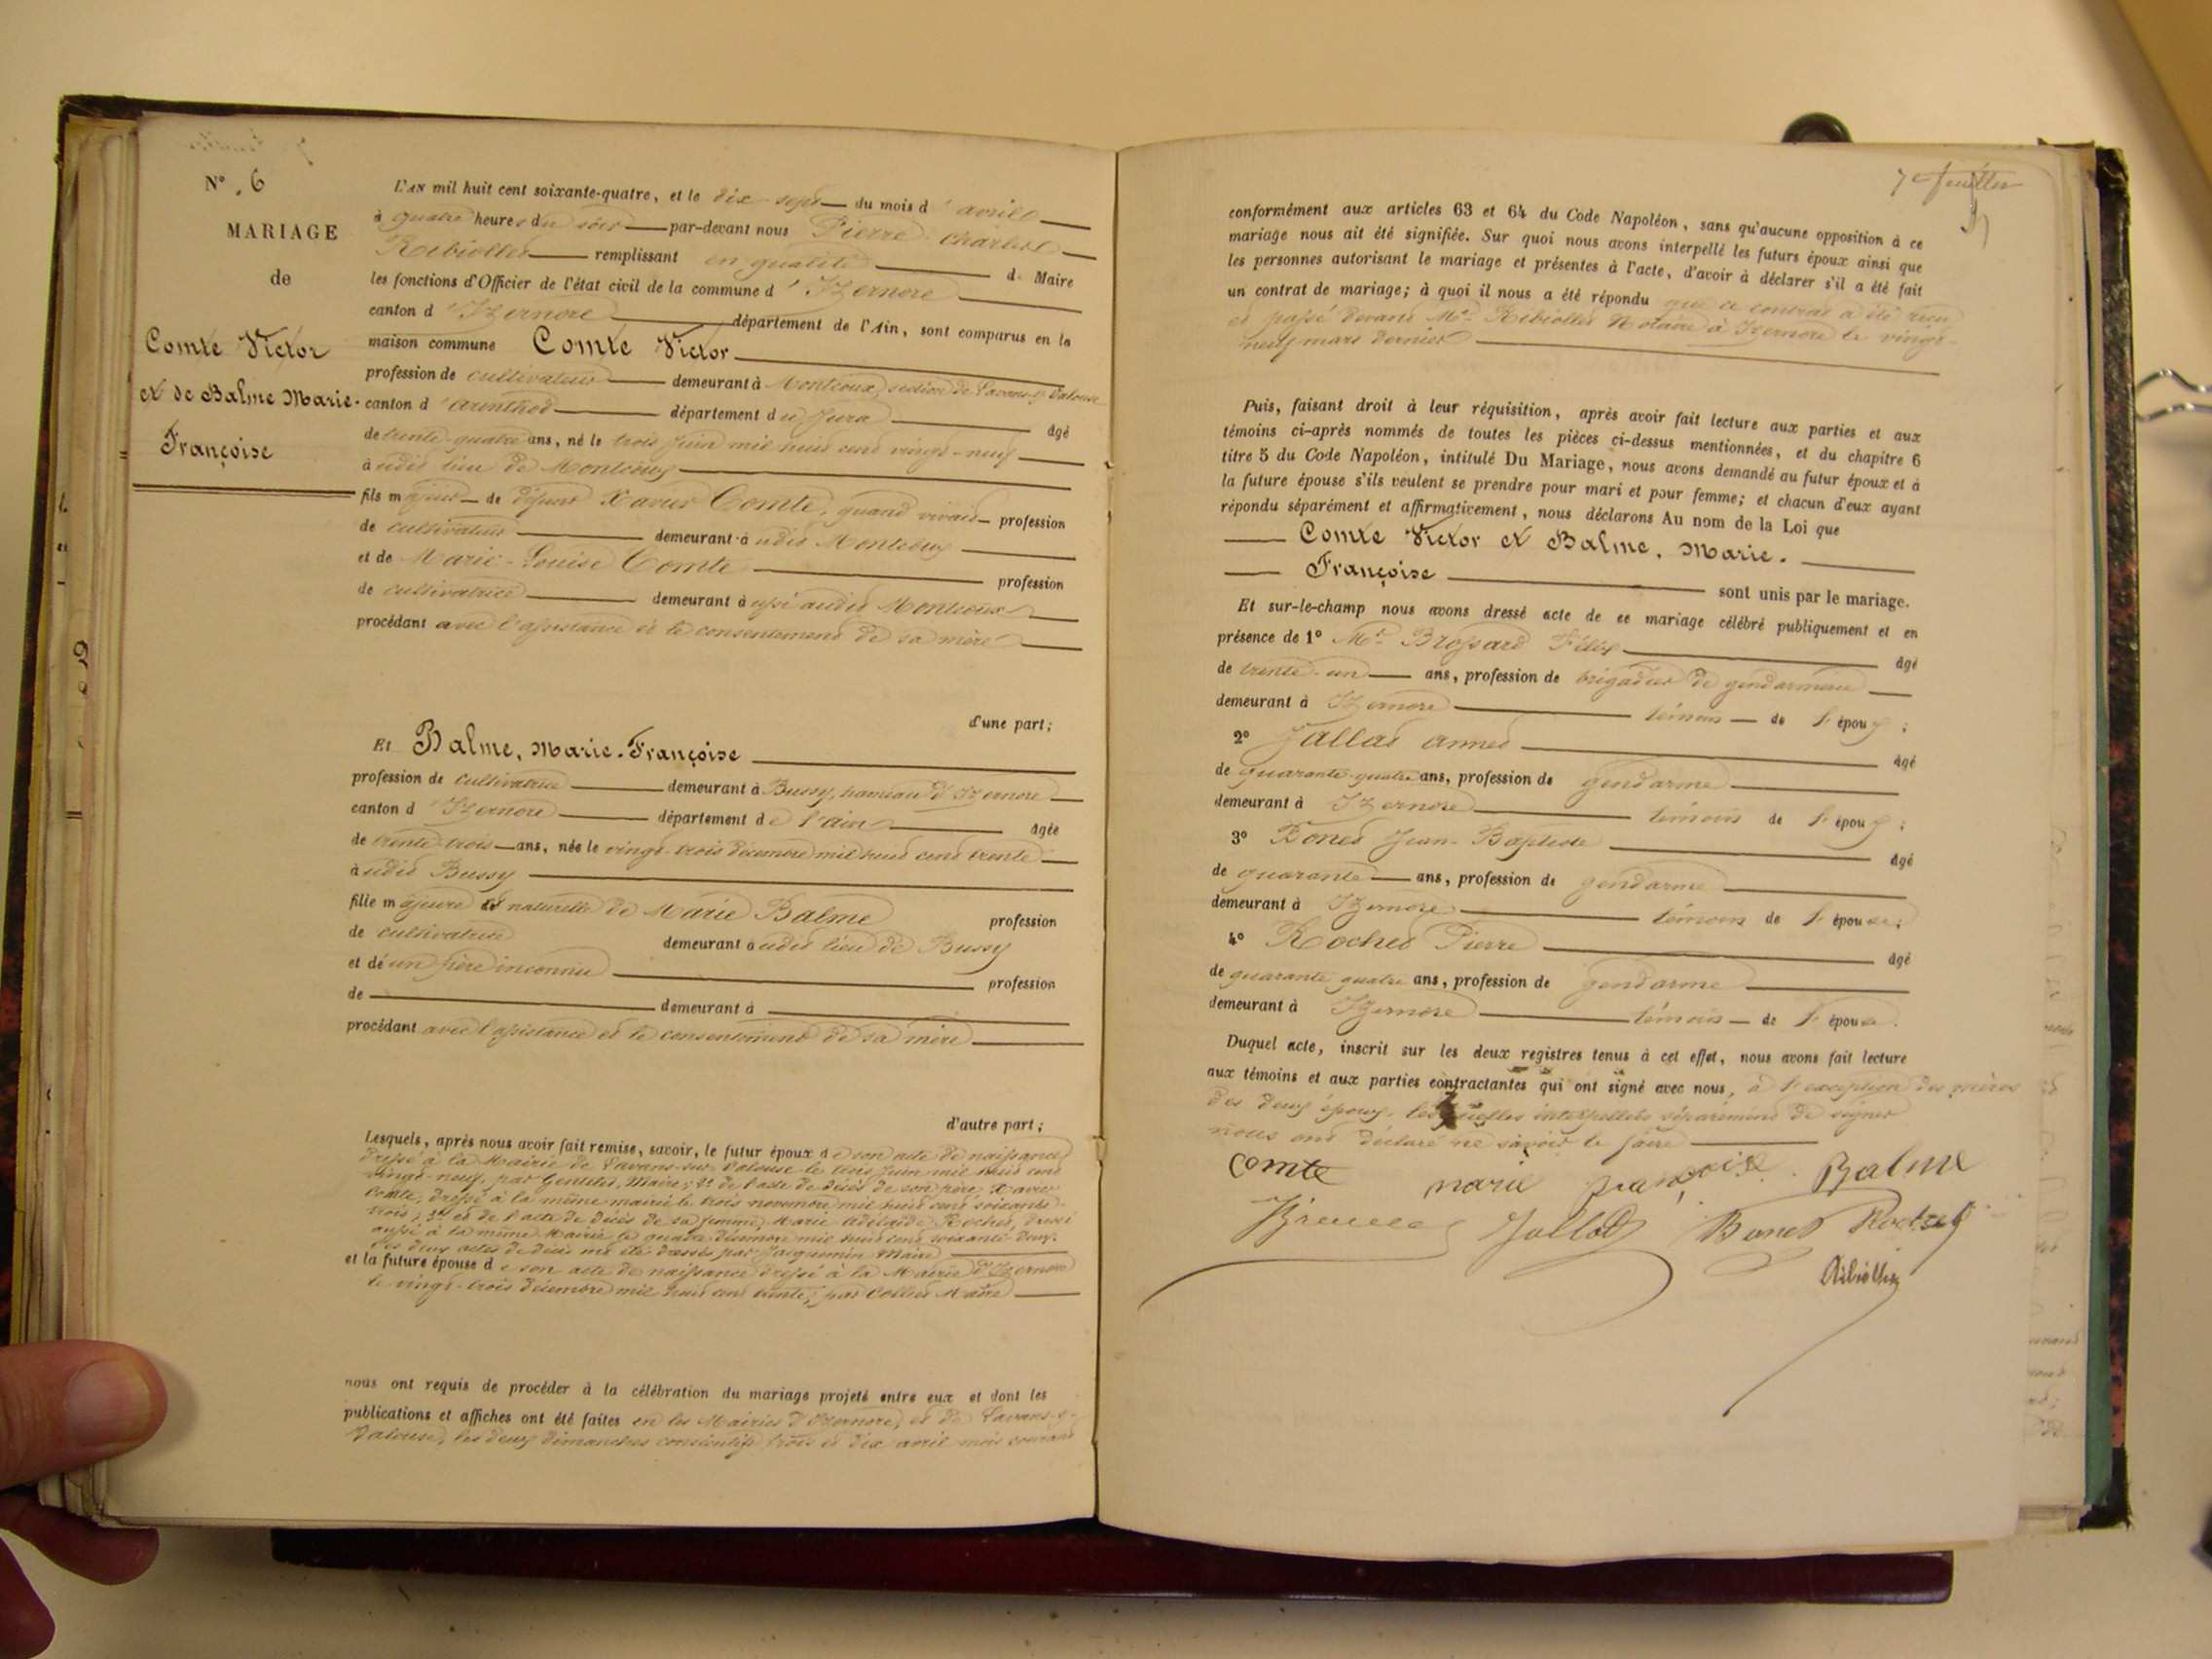 N° 6
MARIAGE
de
Comte Victor
et de Balme Marie-
Françoise
L'AN mil huit cent soixante-quatre, et le dix sept du mois d'avril
à quatre heures du soir par-devant nous Pierre Charles
Ribiollet remplissant en qualité de Maire
les fonctions d'Officier de l'état civil de la commune d'Izernore
canton d'Izernore département de l'Ain, sont comparus en la
maison commune Comte Victor
profession de cultivateur demeurant à Montcoux, section de Lavans-s-Valouse
canton d'Arinthod département du Jura âgé
de trente-quatre ans, né le trois juin mil huit cent vingt-neuf
à udit lieu de
fils majeur de défunt Xavier Comte, quand vivait profession
de cultivateur demeurant à udit
et de Marie-Louise Comte profession
de cultivatrice demeurant à ussi audit Montcoux
procédant avec l'assistance et le consentement de sa mère
d'une part;
Et Balme, Marie-Françoise
profession de cultivatrice demeurant à Bussy, hameau d'Izernore
canton d'Izernore département de l'ain âgée
de trente-trois ans, née le vingt-trois décembre mil huit cent trente
à udit Bussy
fille majeure et naturelle de Marie Balme profession
de cultivatrice demeurant à udit lieu de Bussy
et de un père inconnu profession
de demeurant à
procédant avec l'assistance et le consentement de sa mère
d'autre part;
Lesquels, après nous avoir fait remise, savoir, le futur époux de son acte de naissance
dressé à la Mairie de Lavans-sur-Valouse le trois juin mil huit cent
vingt-neuf, par Maire; 2° de l'acte de décès de son père Xavier
Comte, dressé à la même mairie le trois novembre mil huit cent soixante-
trois; 3° et de l'acte de décès de sa femme Marie Adélaïde Rochet, dressé
aussi à la même Mairie le quatre décembre mil huit cent soixante-deux.
Ces deux actes de décès ont été dressés par Jacquemin Maire
et la future épouse de son acte de naissance dressé à la Mairie d'Izernore
le vingt-trois décembre mil huit cent trente, par Maire
nous ont requis de procéder à la célébration du mariage projeté entre eux et dont les
publications et affiches ont été faites en les Mairies d'Izernore, et de Lavans-s-
Valouse, les deux dimanches consécutifs trois et dix avril mois courant
7e feuillet
conformément aux articles 63 et 64 du Code Napoléon, sans qu'aucune opposition à ce
mariage nous ait été signifiée. Sur quoi nous avons interpellé les futurs époux ainsi que
les personnes autorisant le mariage et présentes à l'acte, d'avoir à déclarer s'il a été fait
un contrat de mariage; à quoi il nous a été répondu que ce contrat a été reçu
et passé devant Me Ribiollet Notaire à Izernore le vingt-
neuf mars dernier
Puis, faisant droit à leur réquisition, après avoir fait lecture aux parties et aux
témoins ci-après nommés de toutes les pièces ci-dessus mentionnées, et du chapitre 6
titre 5 du Code Napoléon, intitulé Du Mariage, nous avons demandé au futur époux et à
la future épouse s'ils veulent se prendre pour mari et pour femme; et chacun d'eux ayant
répondu séparément et affirmativement, nous déclarons Au nom de la Loi que
Comte Victor et Balme, Marie-
Françoise
sont unis par le mariage.
Et sur-le-champ nous avons dressé acte de ce mariage célébré publiquement et en
présence de 1° Mr Brossard Félix âgé
de trente-un ans, profession de brigadier de gendarmerie
demeurant à Izernore témoin de l'époux;
2° Jallad âgé
de quarante-quatre ans, profession de gendarme
demeurant à Izernore témoin de l'époux;
3° Bonet Jean-Baptiste âgé
de quarante ans, profession de gendarme
demeurant à Izernore témoin de l'épouse;
4° Rochet Pierre âgé
de quarante quatre ans, profession de gendarme
demeurant à Izernore témoin de l'épouse.
Duquel acte, inscrit sur les deux registres tenus à cet effet, nous avons fait lecture
aux témoins et aux parties contractantes qui ont signé avec nous, à l'exception des mères
des deux époux, lesquelles interpellées séparément de signer
nous ont déclaré ne savoir le faire
Comte marie françoise Balme
Bonet Rochet
Ribiollet